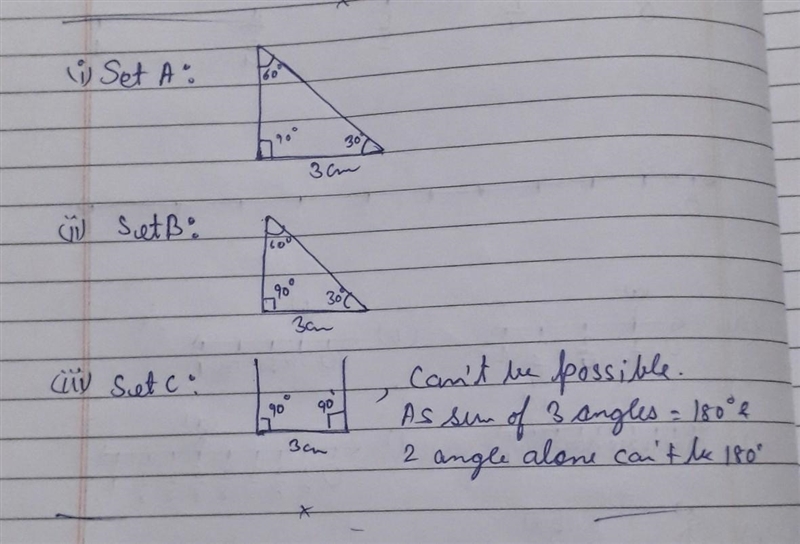 (i) Set A:
60°
90° 30°
3cm
(ii) Set B:
60°
90° 30°
3cm
(iii) Set C:
90° 90°
3cm
, Can't be possible.
As sum of 3 angles = 180° &
2 angle alone can't be 180°